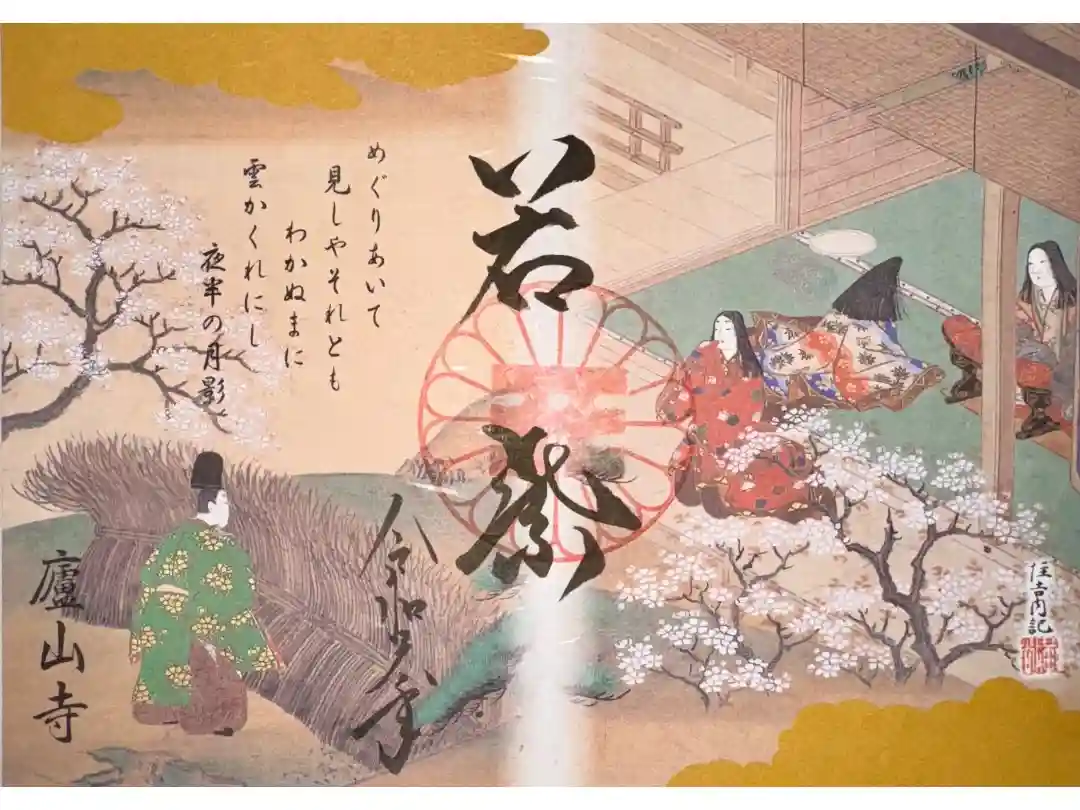 住吉内記
若紫
めぐりあいて
見しやそれとも
わかぬまに
雲かくれにし
夜半の月影
令和
年
廬山寺